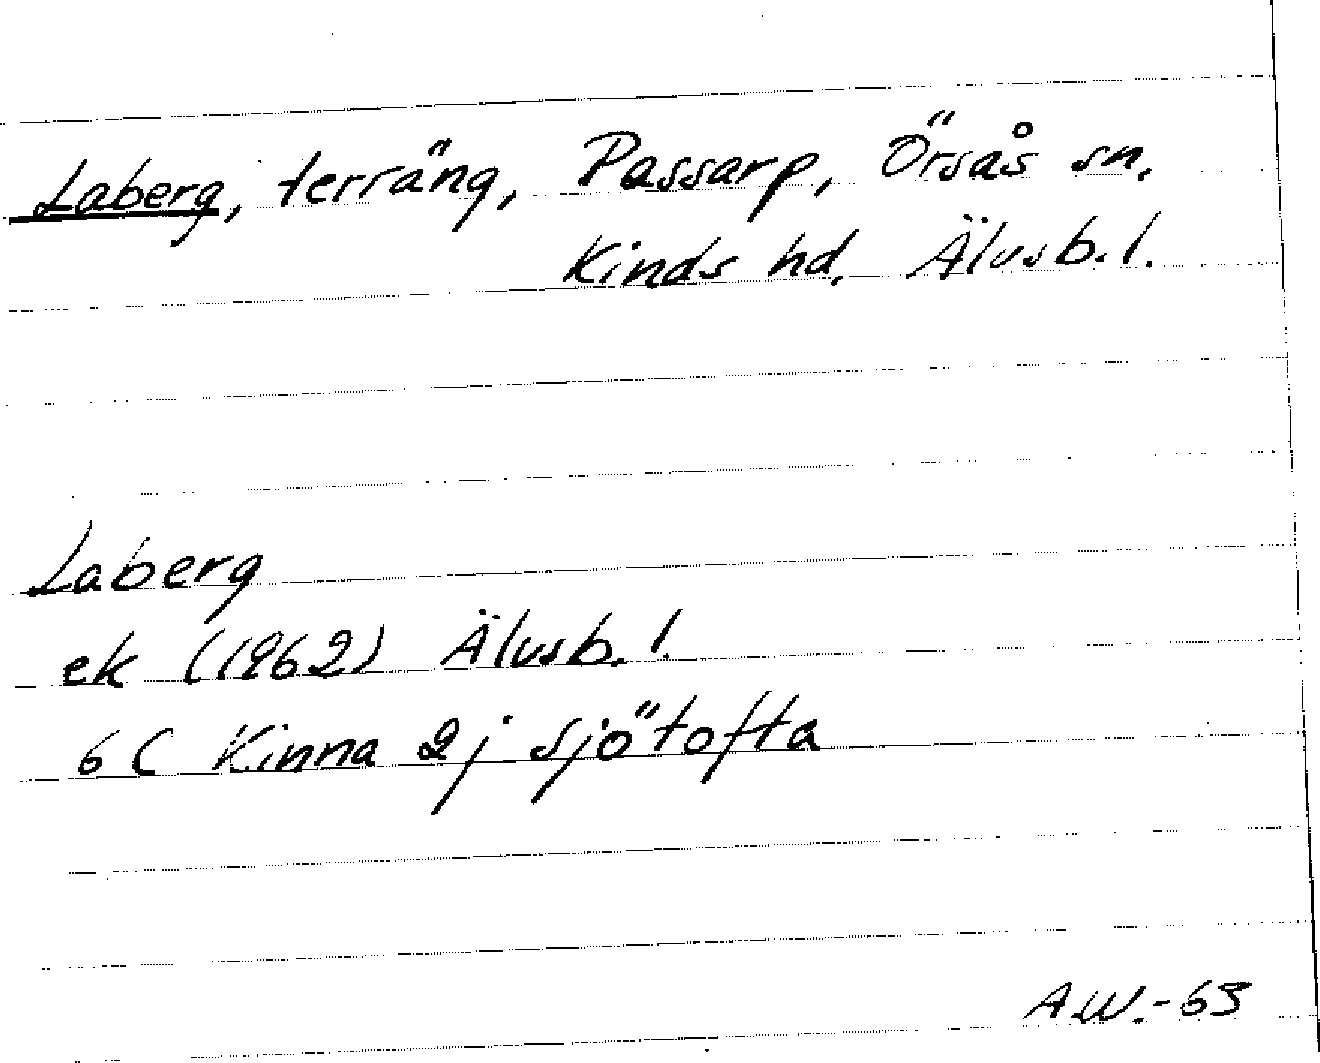 Laberg, terräng, Passarp, Örsås sn.
Kinds hd. Älvsb. l.
Laberg
ek (1962) Älvsb. l.
6 C Kinna 2 j Sjötofta
A.W.-63